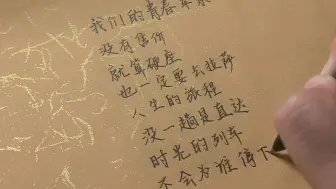 我们的青春年景
没有售价
就算硬座
也一定要去拉萨
人生的旅程
没一趟是直达
时光的列车
不会为谁停下